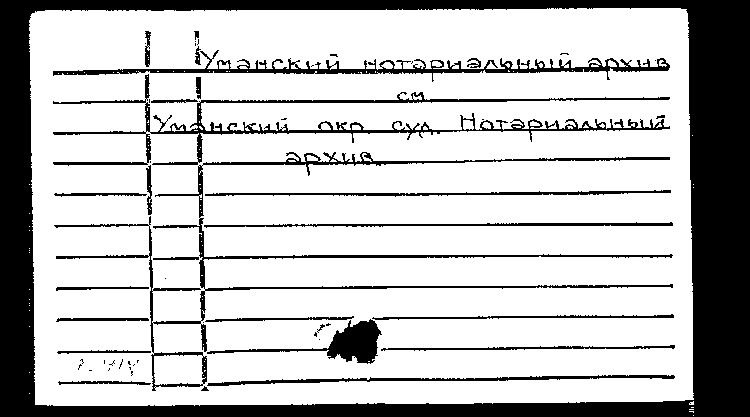 Уманский нотариальный архив
см.
Уманский окр. суд. Нотариальный
архив.